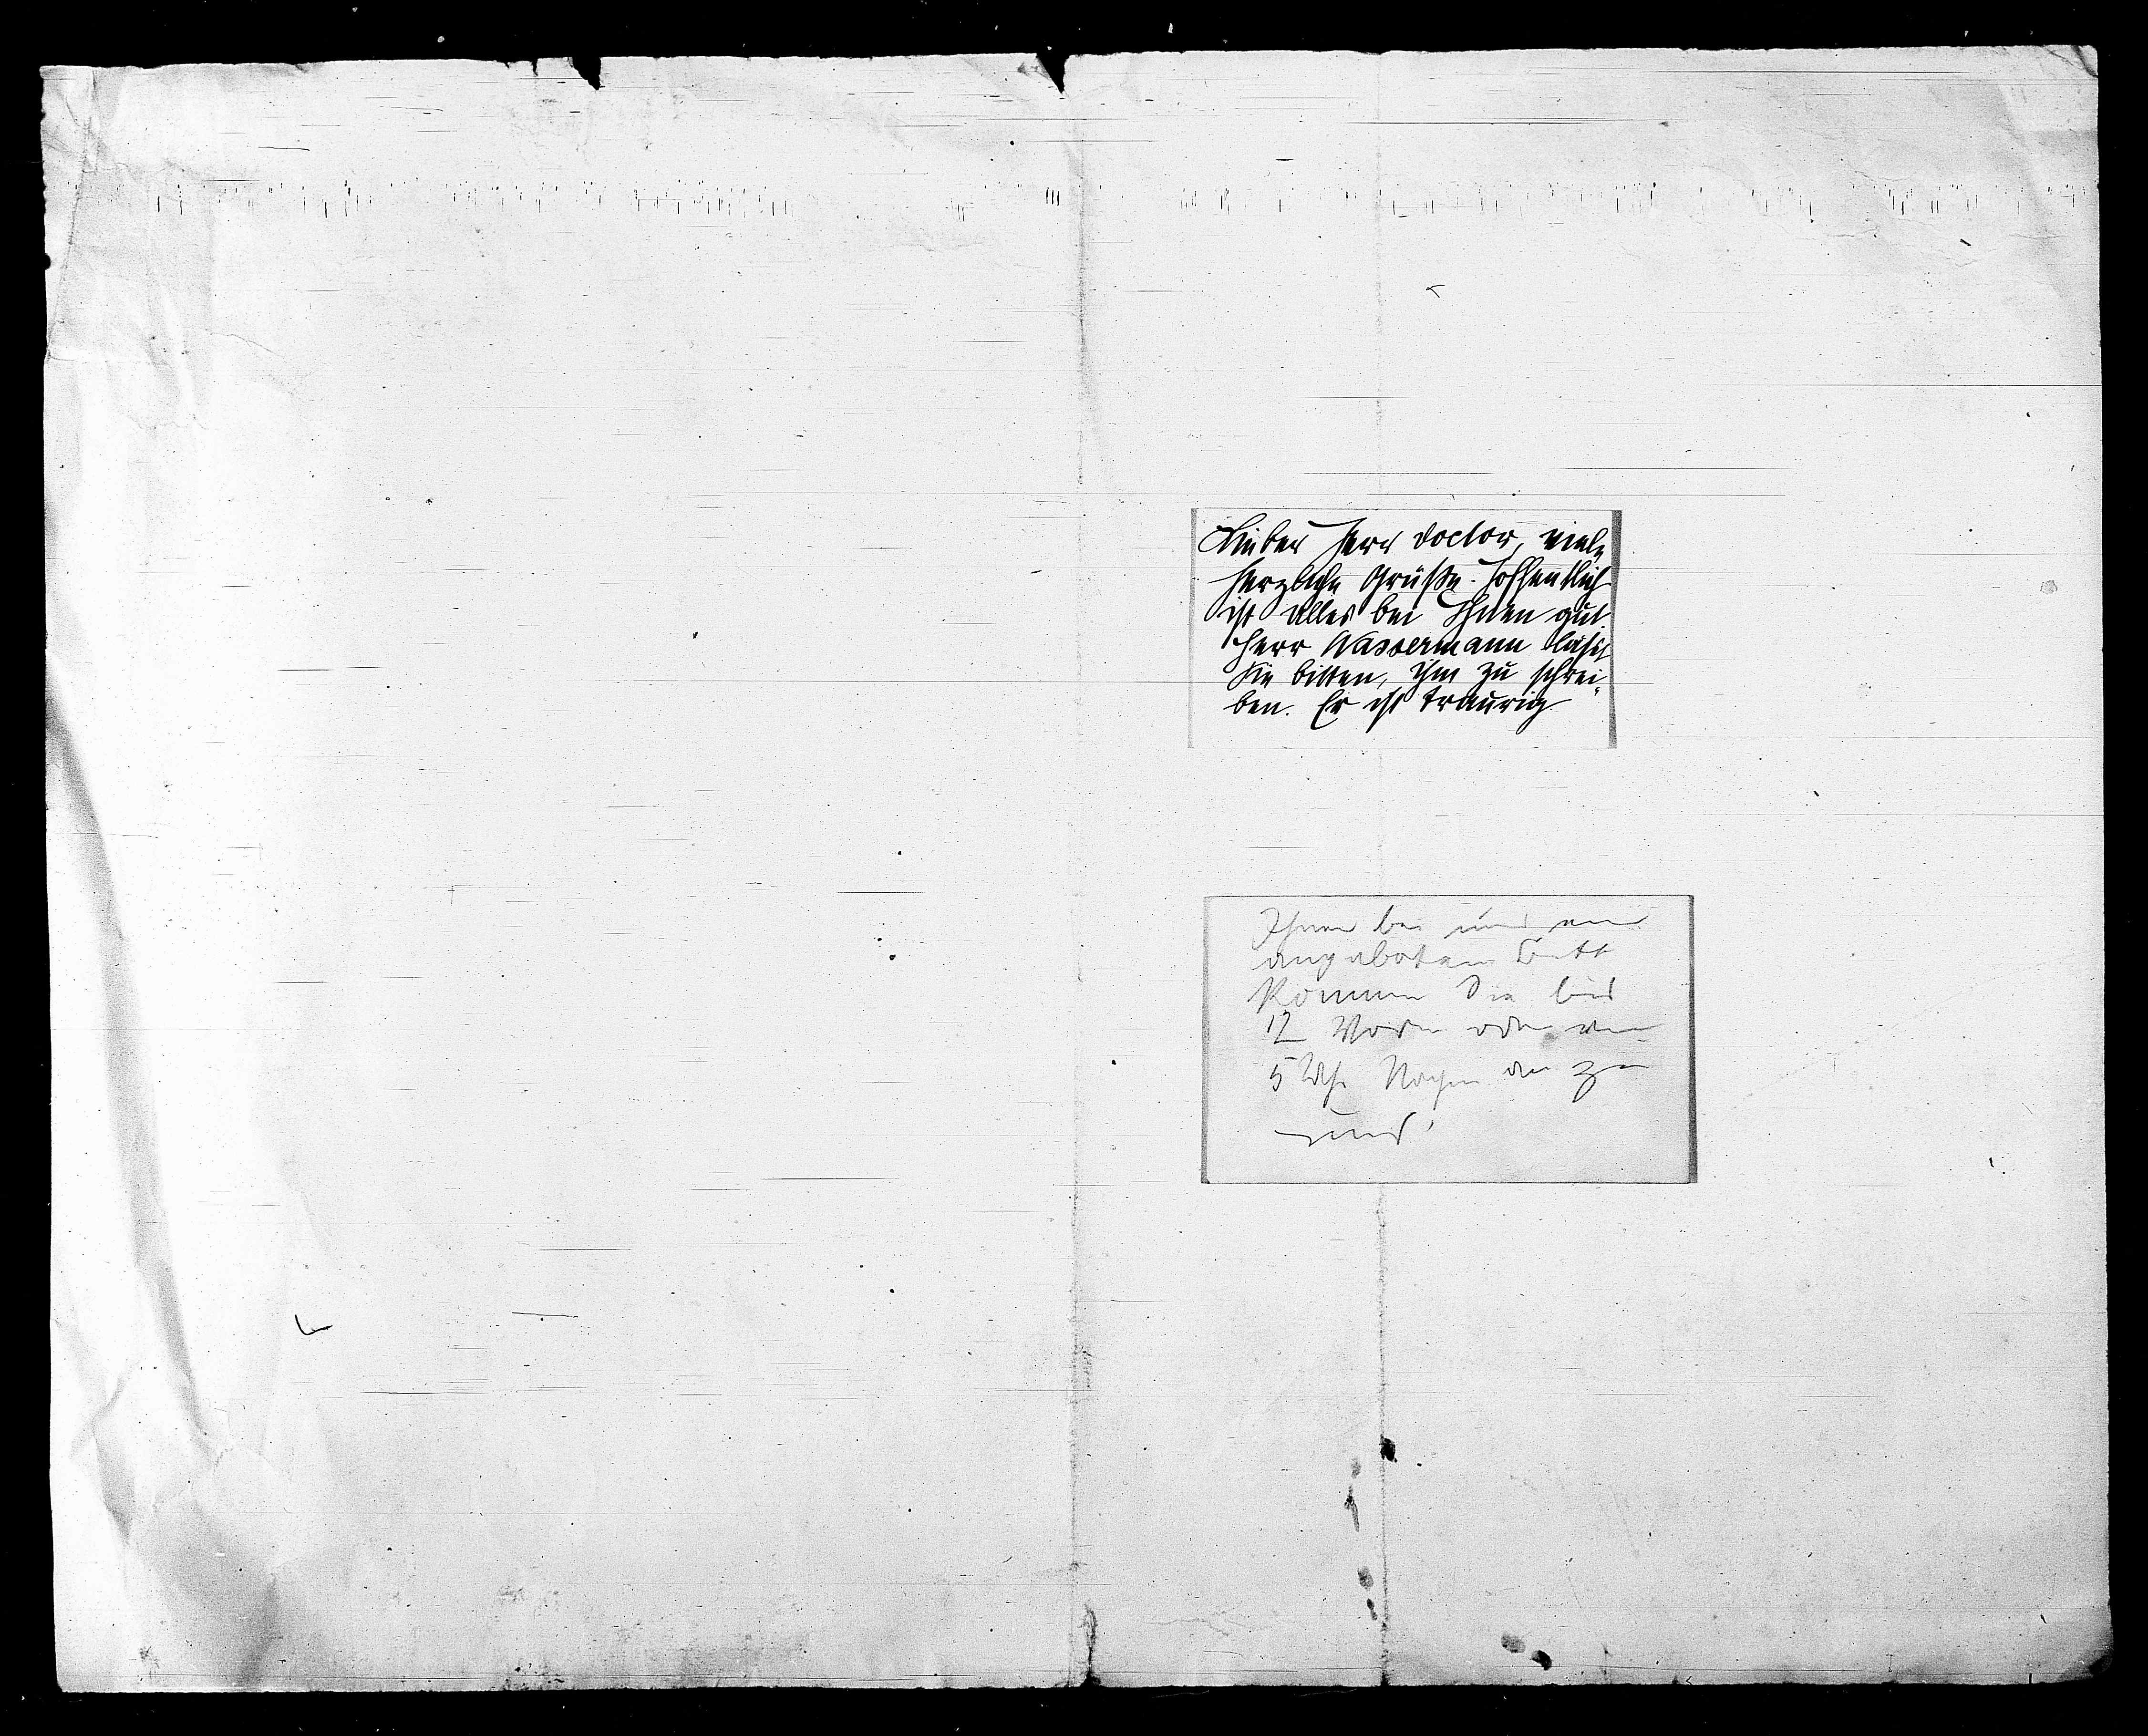 Lieber Herr Doctor, viele
herzliche Grüße. Hoffentlich
ist alles bei Ihnen gut.
Herr Wassermann läßt
Sie bitten, ihm zu schrei-
ben. Er ist traurig
Ihnen bei uns ein
angeboten Bitte
Kommen Sie bis
12 Vorm oder von
5 Uhr Nachm an zu
uns